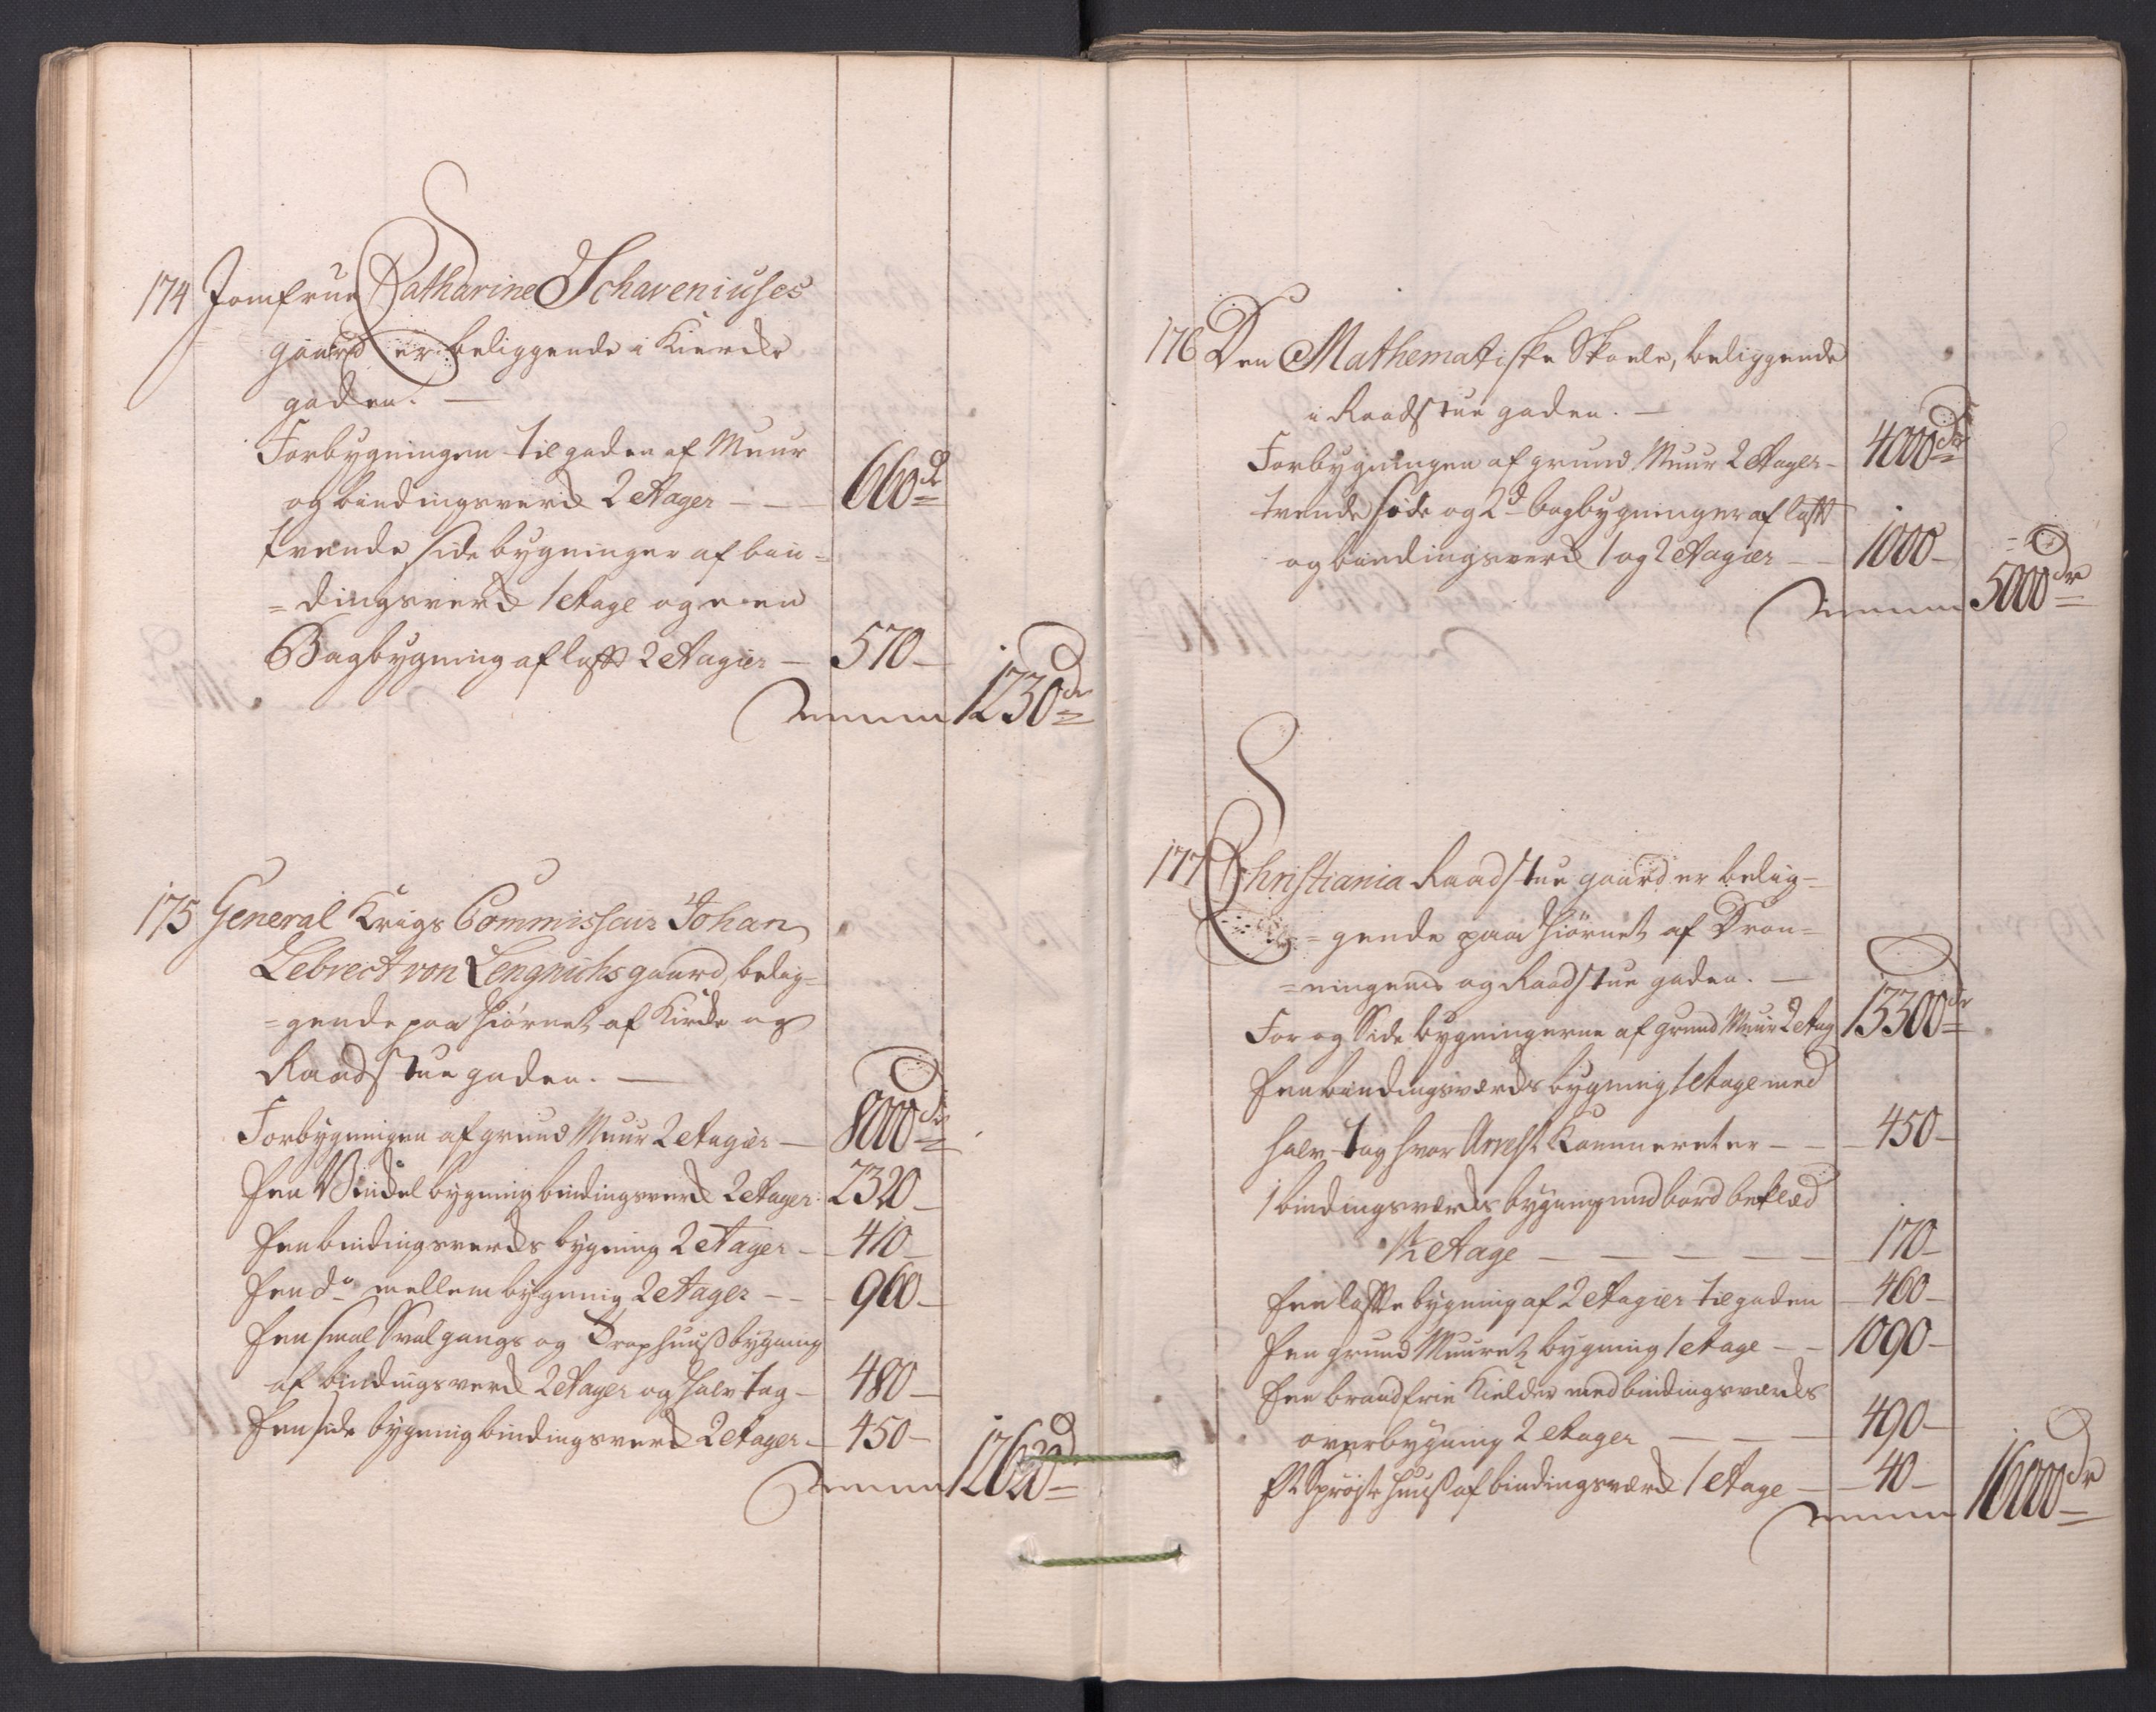 174 Jomfrue Catharine Schaveniuses
gaard er beliggende i Kierke
gaden. —
Forbygningen til gaden af Muur
og bindingsverk 2 Etager — — 660 d
tvende side bygninger af bin=
=dingsverk 1 Etage og een
Bagbygning af laft 2 Etagier — 570 —
Summa 1230 dr
175 General Krigs Commissair Johan
Lebrect von Lengnichs gaard, belig=
=gende paa Hiørnet af Kirke og
Raadstue gaden. —
Forbygningen af grund Muur 2 Etagier — 8000 dr
Een Vindel bygning bindingsverk 2 Etager. 2320 —
Een bindingsverks bygning 2 Etager — 410 —
Een do mellem bygning 2 Etager — — 960 —
Een smal Svalgangs og Traphuuß bygning
af bindingsverk 2 Etager og halv tag — 480 —
Een side bygning bindingsverk 2 Etager — 450 —
Summa 12620 d
176 Den Mathematiske Skoele, beliggende
i Raadstue gaden. —
Forbygningen af grund Muur 2 Etager — 4000 dr
tvende side og 2de bagbygninger af laft
og bindingsverk 1 og 2 Etagier — — 1000 —
Summa 5000 dr
177 Christiania Raadstue gaard er belig=
=gende paa Hiørnet af Dron=
=ningens og Raadstue gaden. —
For og Side bygningerne af grund Muur 2 Etag 13300 dr
Een bindingsverks bygning 1 Etage med
halv tag hvor Arrest Kammeret er — — 450 —
1 bindingsverks bygning med bord beklæd
1½ Etage — — — — — 170 —
Een lafte bygning af 2 Etagier til gaden — 460 —
Een grund Muuret bygning 1 Etage — — 1090 —
Een brandfrie Kielder med bindingsverks
overbygning 2 Etager — — — 490 —
Et Sprøite Huuß af bindingsverk 1 Etage — — 40 —
Summa 16000 dr